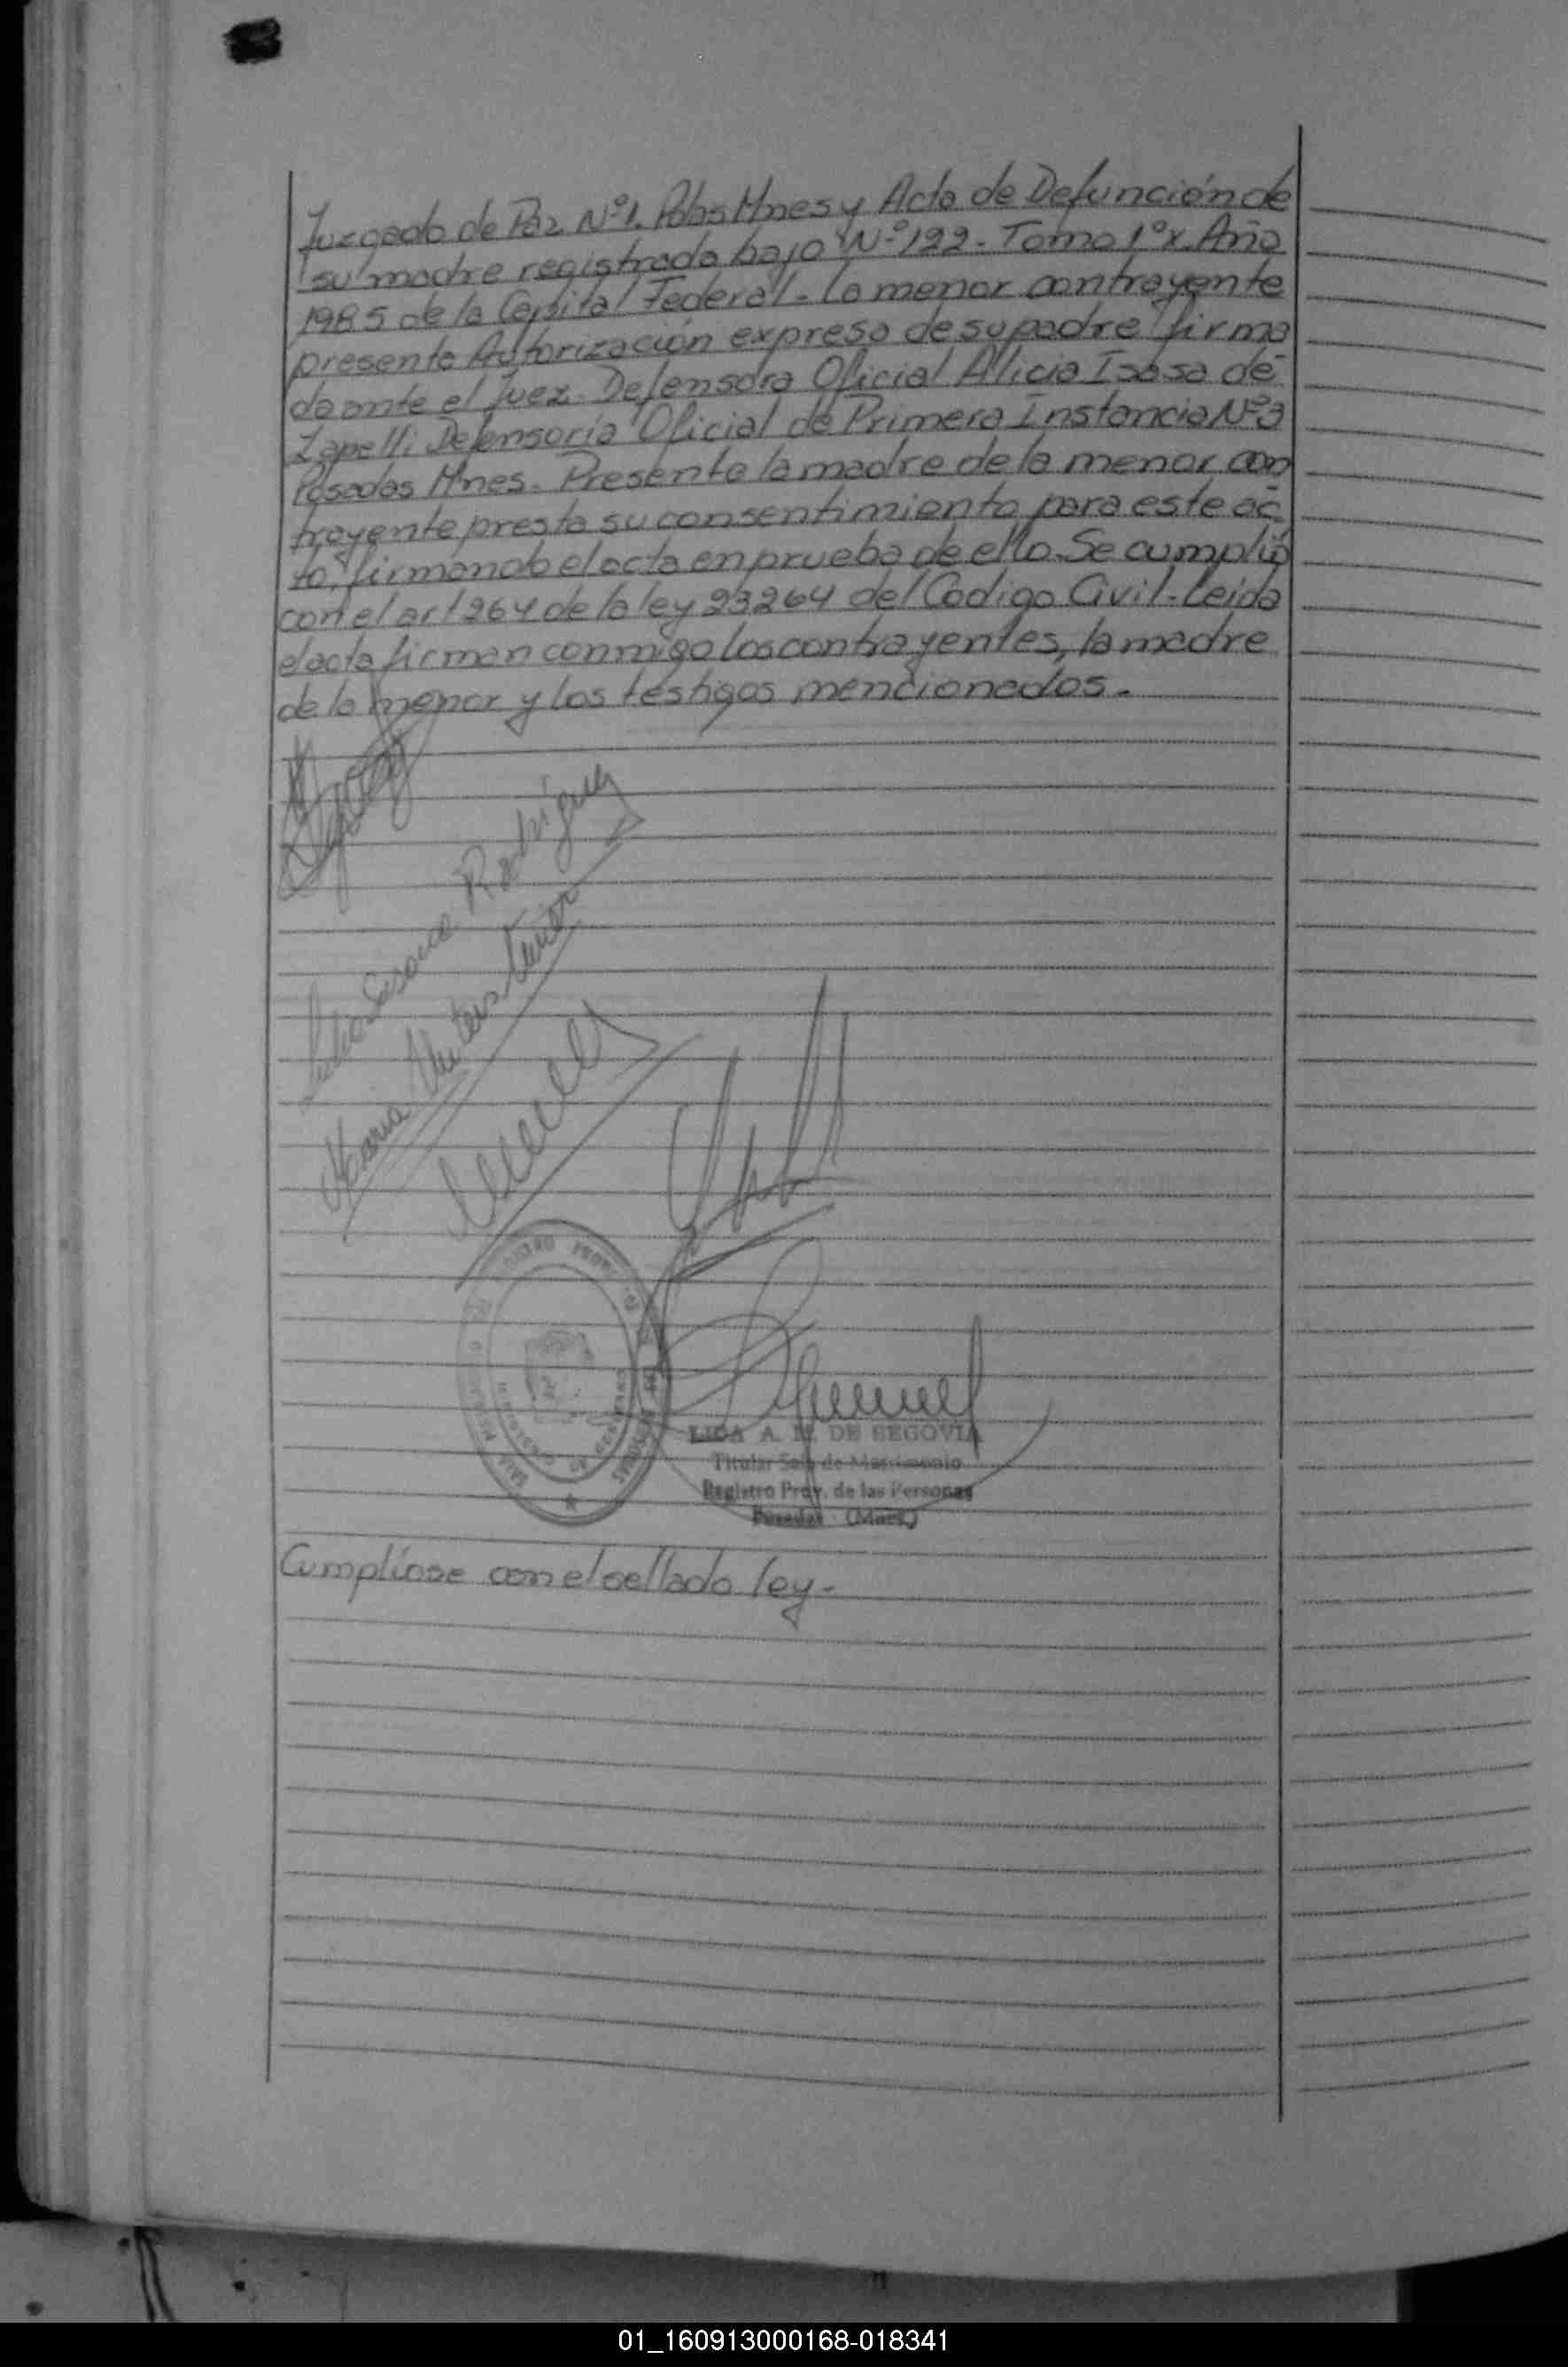 Juzgado de Paz Nº1. Pdas Mnes y Acta de Defunción de
su madre registrada bajo Nº 122 - Tomo 1º X. Año
1985 de la Capital Federal - la menor contrayente
presenta Autorización expresa de su padre firma
da ante el Juez - Defensora Oficial Alicia Isasa de
Zapelli Defensoría Oficial de Primera Instancia Nº3
Posadas Mnes. Presente la madre de la menor con
trayente presta su consentimiento para este ac
to, firmando el acta en prueba de ello. Se cumplió
con el art 264 de la ley 23264 del Codigo Civil - Leida
el acta firman conmigo los contrayentes, la madre
de la menor y los testigos mencionados.
Rodríguez
Maria
LICA A. M. DE SEGOVIA
Titular Sala de Matrimonio
Registro Prov. de las Personas
Posadas (Mnes.)
Cumpliose con el sellado ley.
01_160913000168-018341